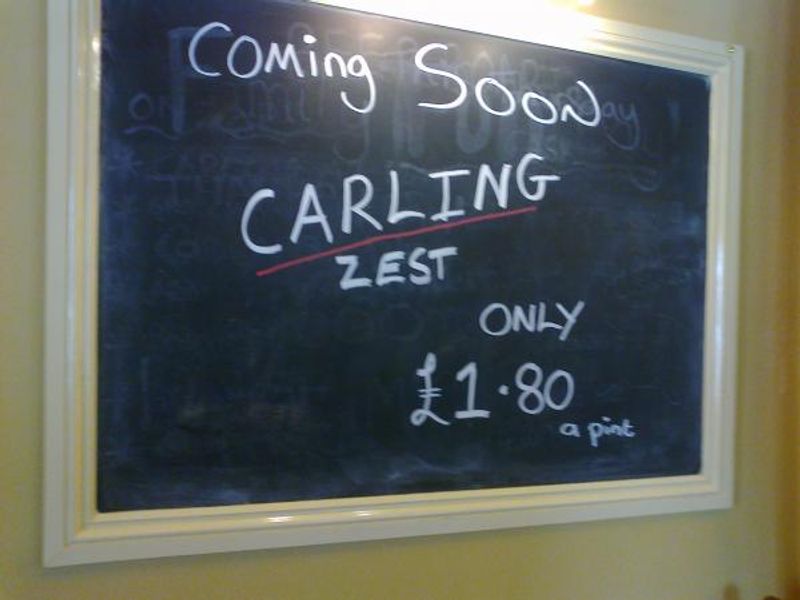 Coming Soon
CARLING
ZEST
ONLY
£1.80
a pint